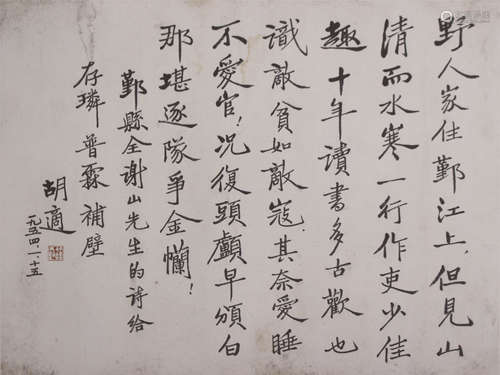 野人家住鄞江上,但見山
清而水寒一行作吏少佳
趣十年讀書多古歡也
識敵貧如敵寇,其奈愛睡
不愛官!況復頭顱早頒白
那堪逐隊爭金㘓!
鄞縣全謝山先生的詩給
存璘普霖補壁
胡適
一九五四,一,十五